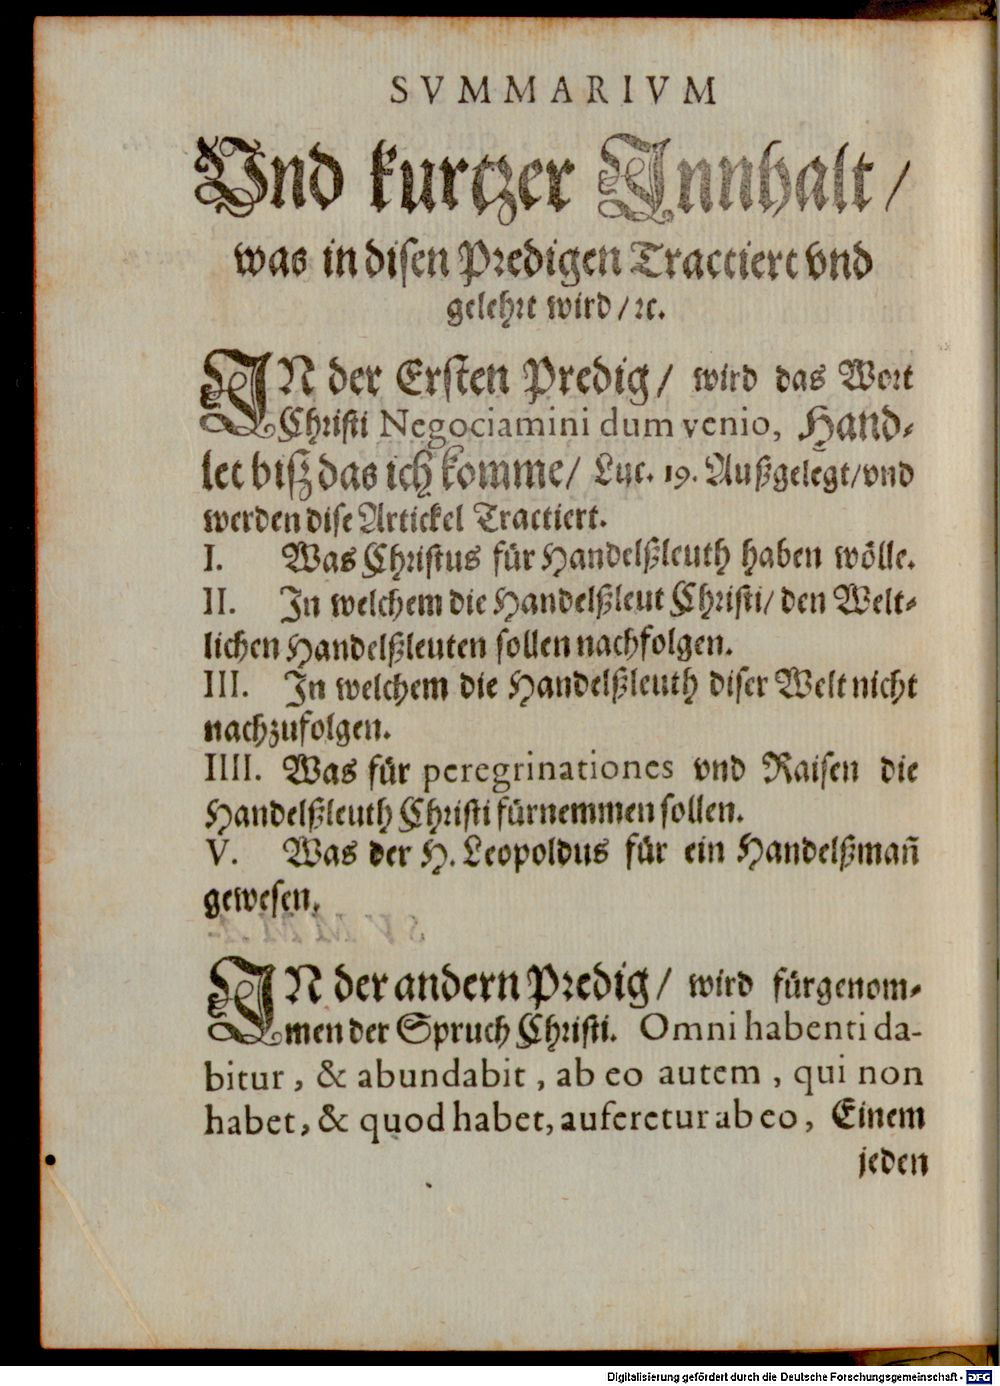 SVMMARIVM
Vnd kurtzer Innhalt /
was in disen Predigen Tractiert vnd
gelehrt wird / ꝛc.
IN der Ersten Predig / wird das Wort
Christi Negociamini dum venio, Hand-
let bisz das ich komme / Luc. 19. Außgelegt / vnd
werden dise Artickel Tractiert.
I. Was Christus für Handelßleuth haben wölle.
II. In welchem die Handelßleut Christi / den Welt-
lichen Handelßleuten sollen nachfolgen.
III. In welchem die Handelßleuth diser Welt nicht
nachzufolgen.
IIII. Was für peregrinationes vnd Raisen die
Handelßleuth Christi fürnemmen sollen.
V. Was der H. Leopoldus für ein Handelßmañ
gewesen.
IN der andern Predig / wird fürgenom-
men der Spruch Christi. Omni habenti da-
bitur, & abundabit, ab eo autem, qui non
habet, & quod habet, auferetur ab eo, Einem
jeden
Digitalisierung gefördert durch die Deutsche Forschungsgemeinschaft - DFG